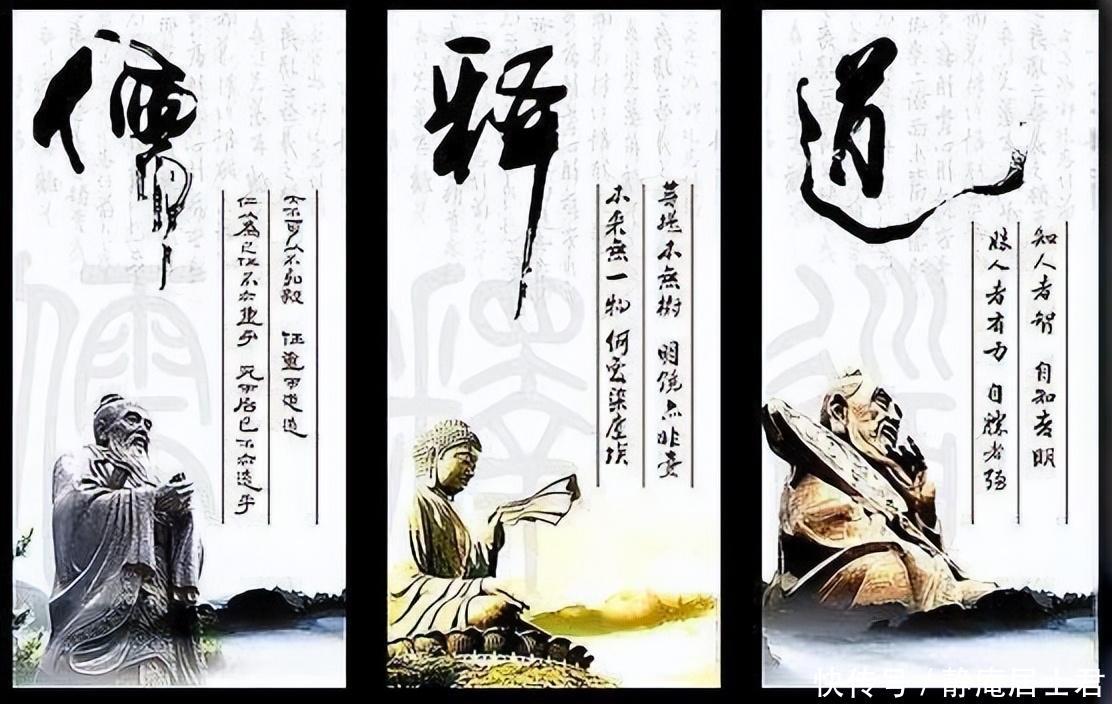 儒
士不可以不弘毅 任重而道遠
仁以為己任不亦重乎 死而后已不亦遠乎
儒
释
菩提本無樹 明镜亦非臺
本来無一物 何處染塵埃
釋
道
知人者智 自知者明
勝人者有力 自勝者强
道
快传号 / 静庵居士君